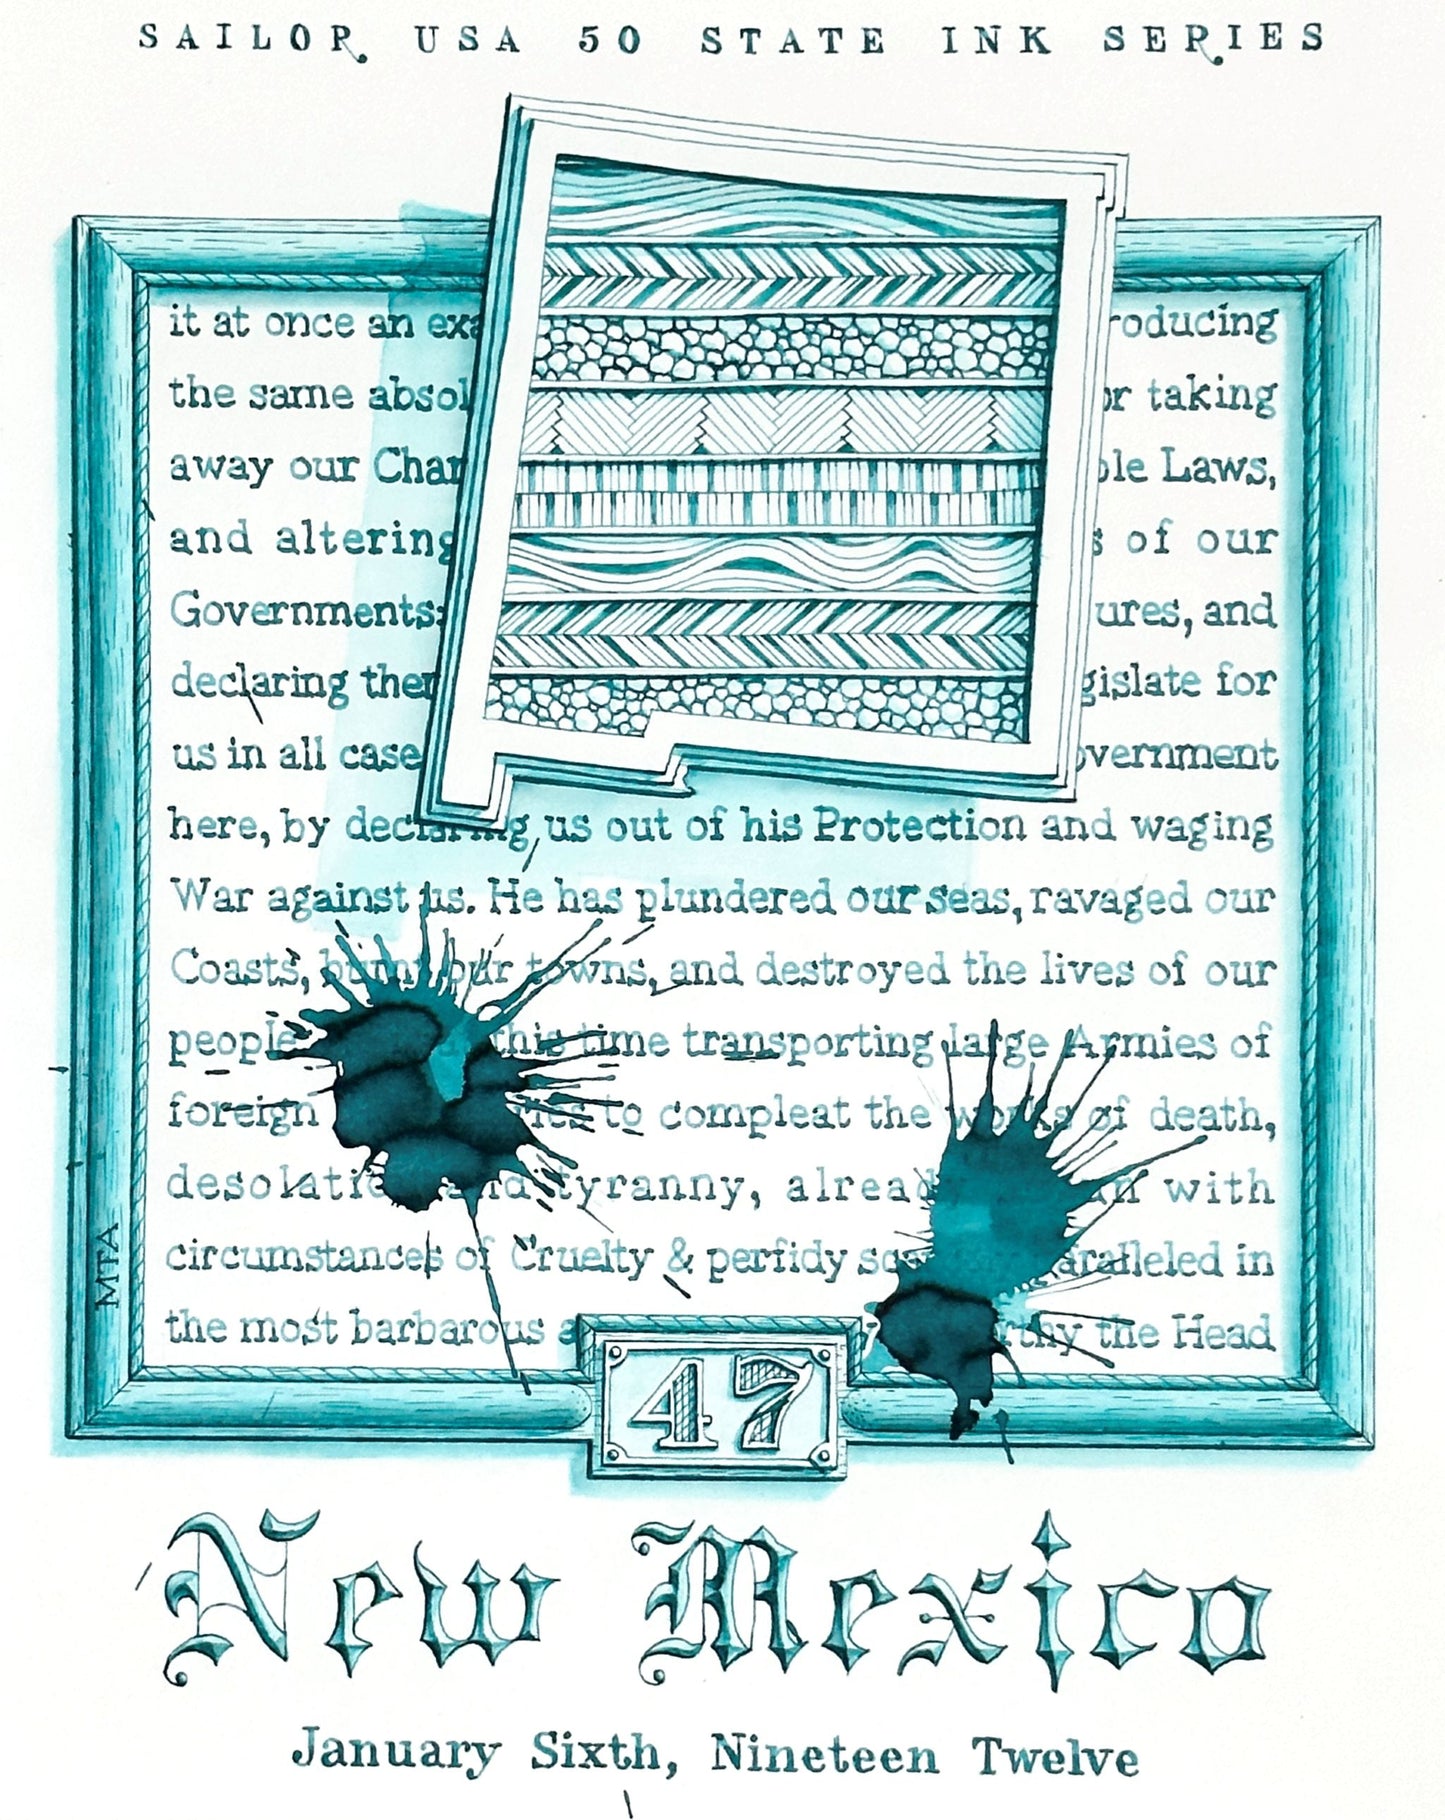 SAILOR USA 50 STATE INK SERIES
it at once an exa roducing
the same absol or taking
away our Char ble Laws,
and altering s of our
Governments: ures, and
declaring them gislate for
us in all case overnment
here, by declaring us out of his Protection and waging
War against us. He has plundered our seas, ravaged our
Coasts, burnt our towns, and destroyed the lives of our
people this time transporting large Armies of
foreign ries to compleat the works of death,
desolation and tyranny, already with
circumstances of Cruelty & perfidy sca aralleled in
the most barbarous a rthy the Head
47
MTA
New Mexico
January Sixth, Nineteen Twelve